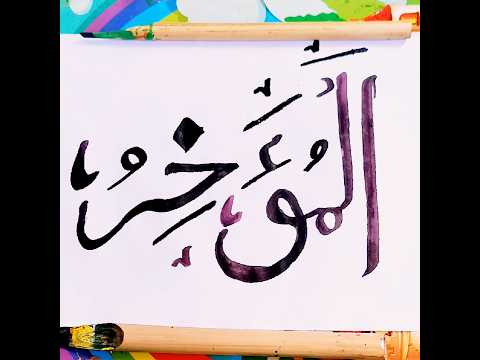 المُؤَخِرُ